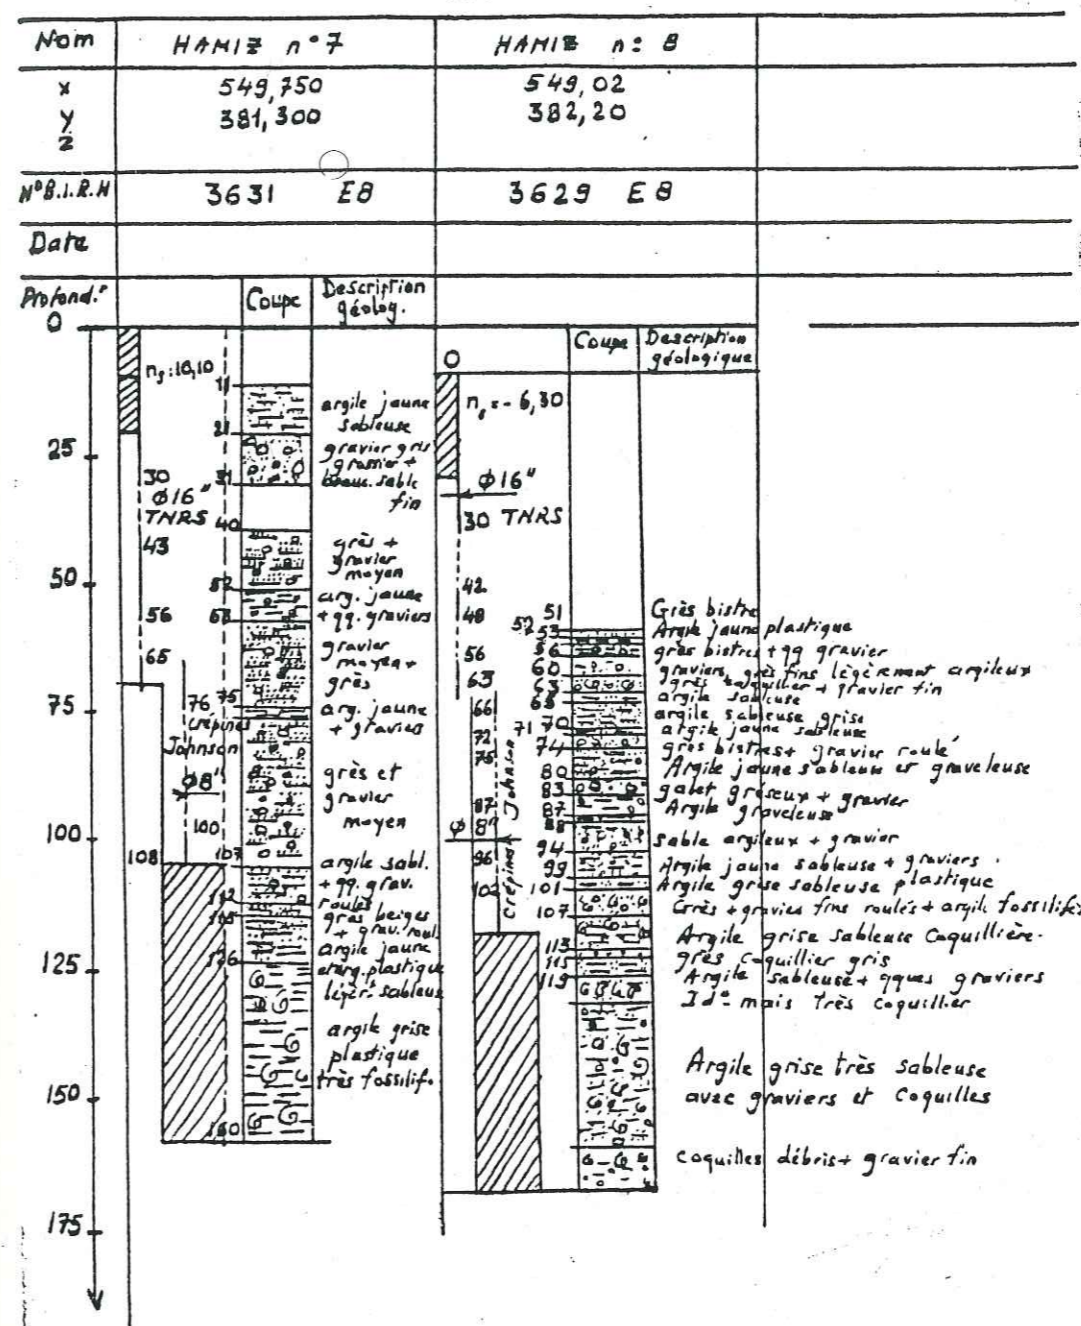 Nom HAMIZ n°7 HAMIZ n: 8
x 549,750 549,02
y 381,300 382,20
z
N°B.I.R.H 3631 E8 3629 E8
Date
Profond.r Coupe Description géolog.
0
25
50
75
100
125
150
175
ns:10,10
30
Ø16"
TNRS
43
56
65
76
crépines
Johnson
Ø8"
100
108
11
21
31
40
52
58
75
107
112
115
126
160
argile jaune
sableuse
gravier gris
grossier +
beauc. sable
fin
grès +
gravier
moyen
arg. jaune
+ qq. graviers
gravier
moyen +
grès
arg. jaune
+ graviers
grès et
gravier
moyen
argile sabl.
+ qq. grav.
roulés
grès beiges
+ grav. roul.
argile jaune
et arg. plastique
légèr.t sableus
argile grise
plastique
très fossilif.
0
Coupe Description
géologique
ns = - 6,30
Ø16"
30 TNRS
42
48
56
63
66
72
75
87
Ø 8"
96
102
Crépines Johnson
51
52
53
56
60
63
65
70
71
74
80
83
87
88
94
99
101
107
113
115
119
Grès bistre
Argile jaune plastique
grès bistres + qq gravier
graviers, grès fins légèrement argileux
grès coquillier + gravier fin
argile sableuse
argile sableuse grise
argile jaune sableuse
grès bistres + gravier roulé
Argile jaune sableuse et graveleuse
galet gréseux + gravier
Argile graveleuse
sable argileux + gravier
Argile jaune sableuse + graviers .
Argile grise sableuse plastique
Grès + gravier fins roulés + argile fossilifè
Argile grise sableuse Coquillière.
grès coquillier gris
Argile sableuse + qques graviers
Id° mais très coquillier
Argile grise très sableuse
avec graviers et coquilles
coquilles débris + gravier fin